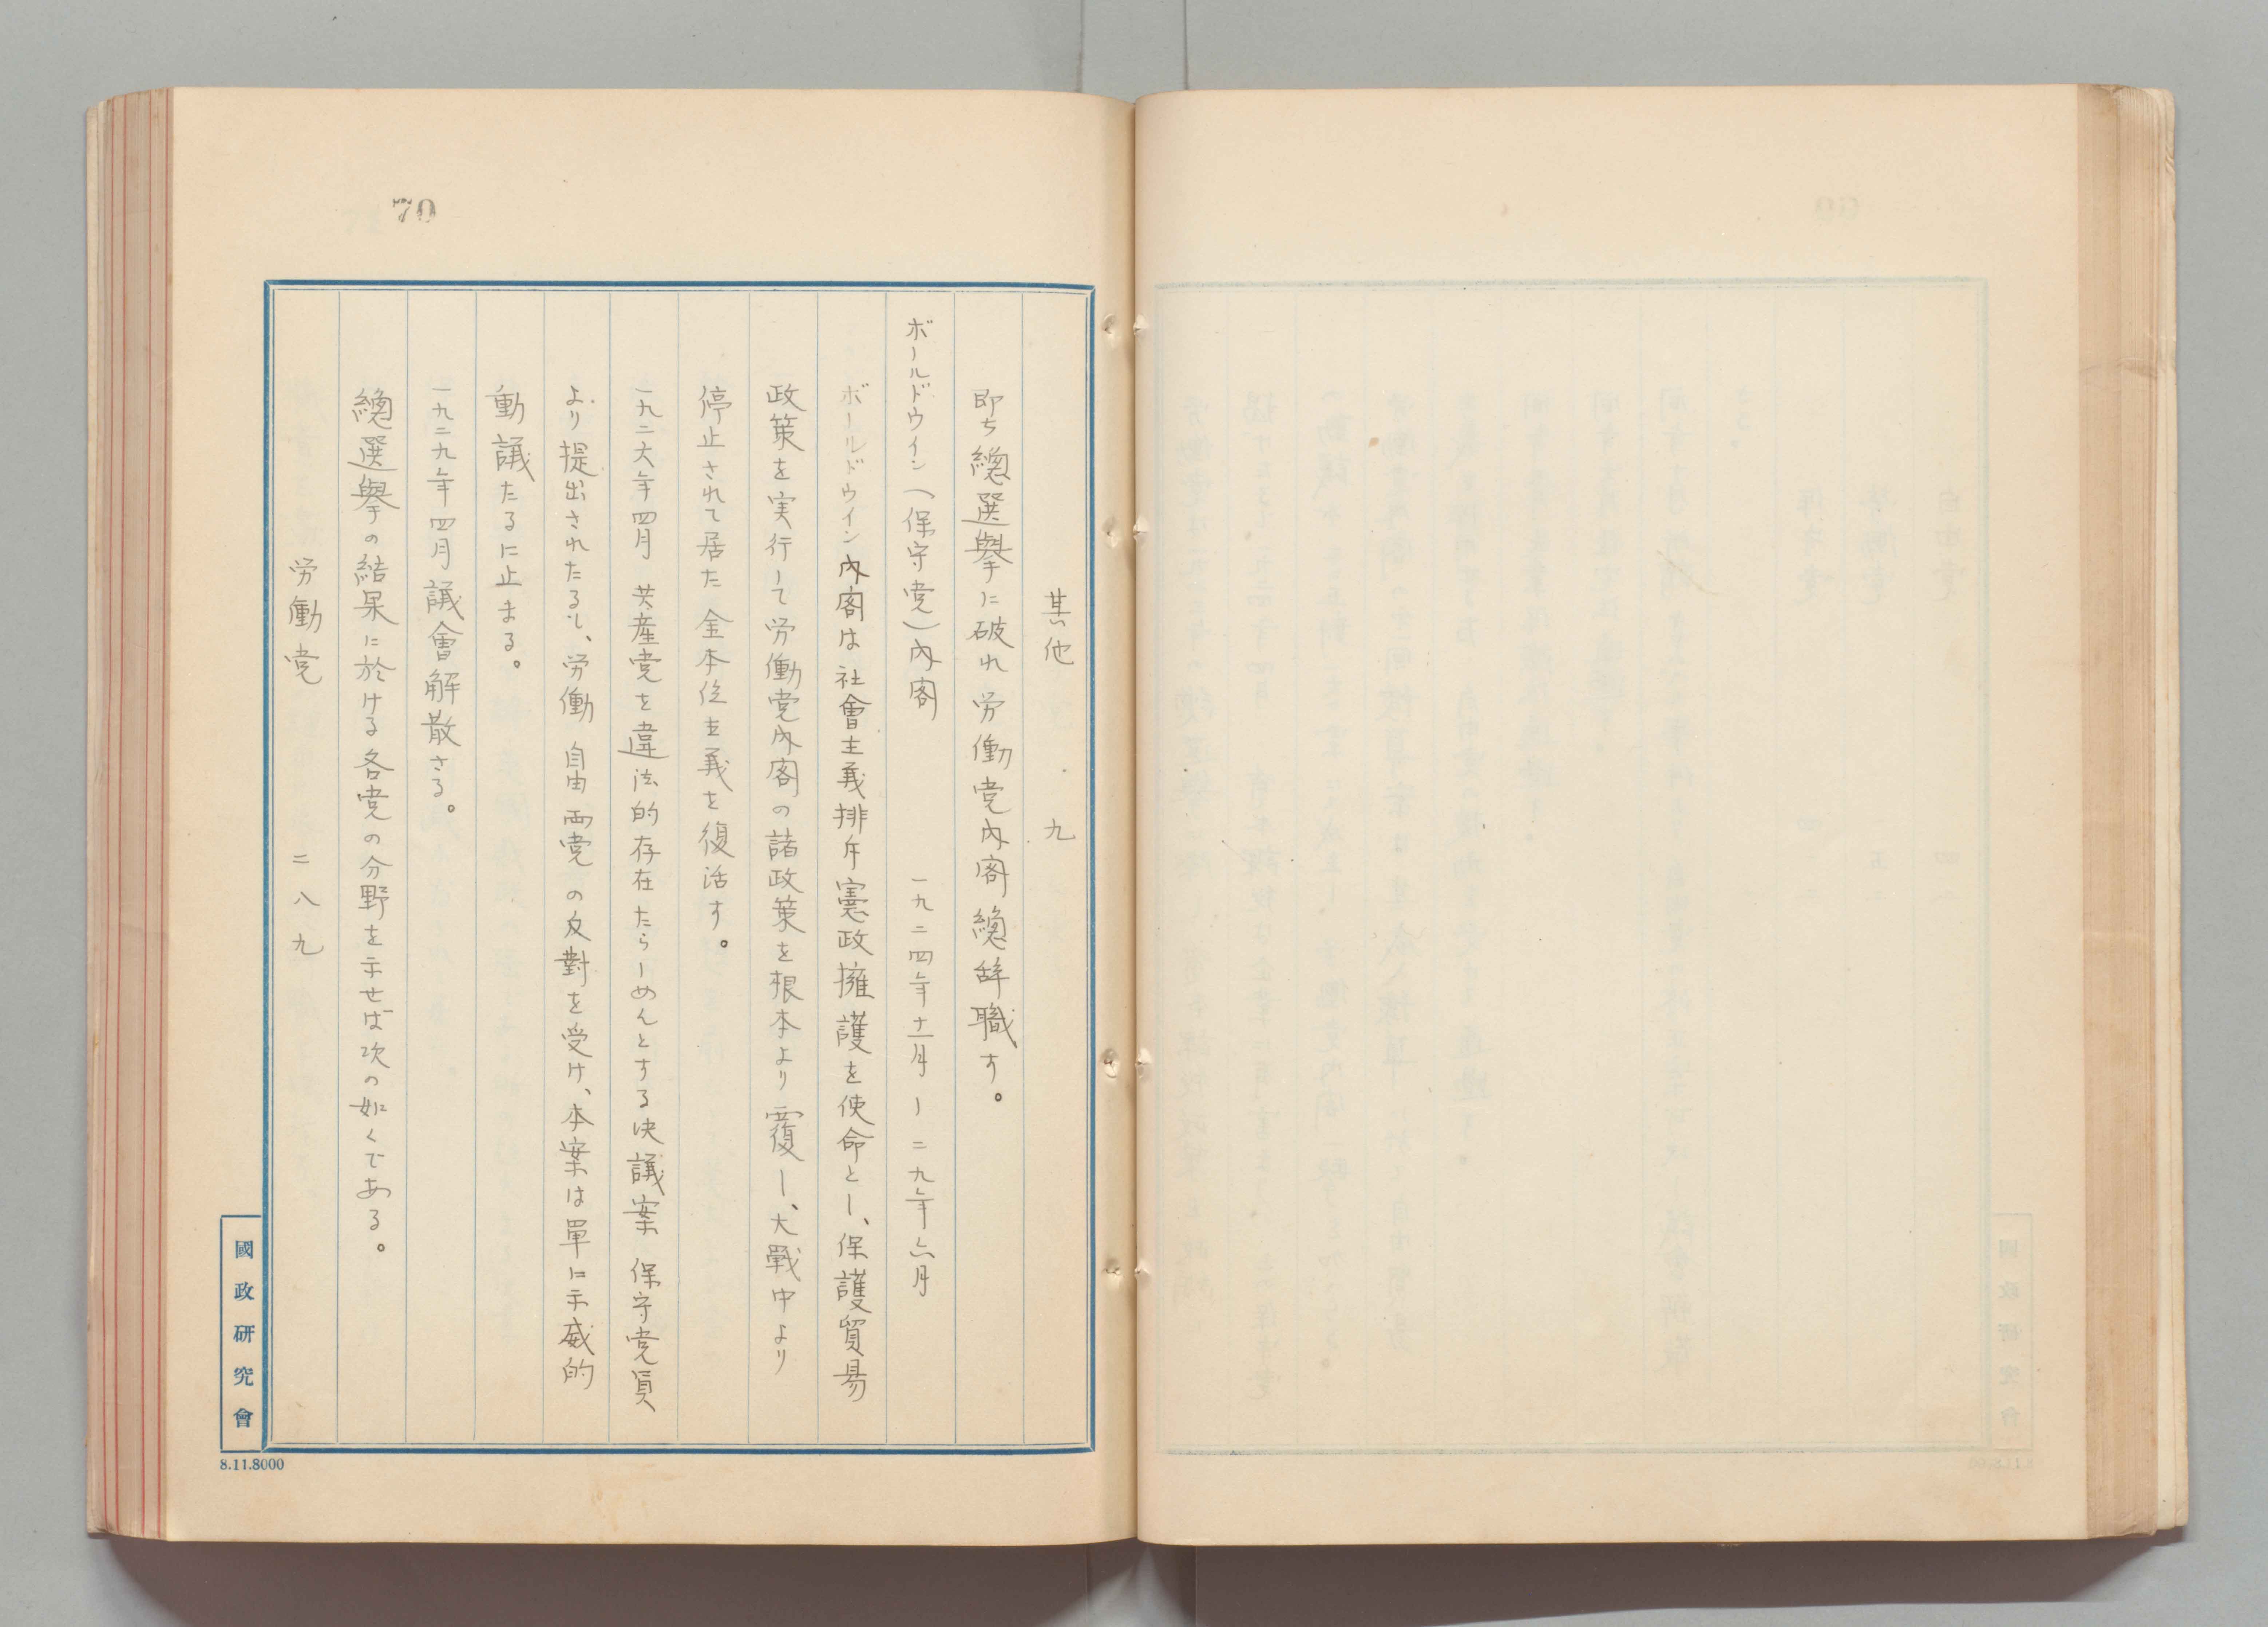 70
其他　九
即ち總選擧に破れ労働党内閣總辞職す。
ボールドウイン（保守党）内閣　一九二四年十一月ー二九年六月
ボールドウイン内閣は社會主義排斥憲政擁護を使命とし、保護貿易
政策を実行して労働党内閣の諸政策を根本より覆し、大戰中より
停止されて居た金本位主義を復活す。
一九二六年四月共産党を違法的存在たらしめんとする決議案保守党員
より提出されたるも、労働自由両党の反對を受け、本案は單に示威的
動議たるに止まる。
一九二九年四月議會解散さる。
總選擧の結果に於ける各党の分野を示せば次の如くである。
労働党　二八九
國政研究會
8.11.8000